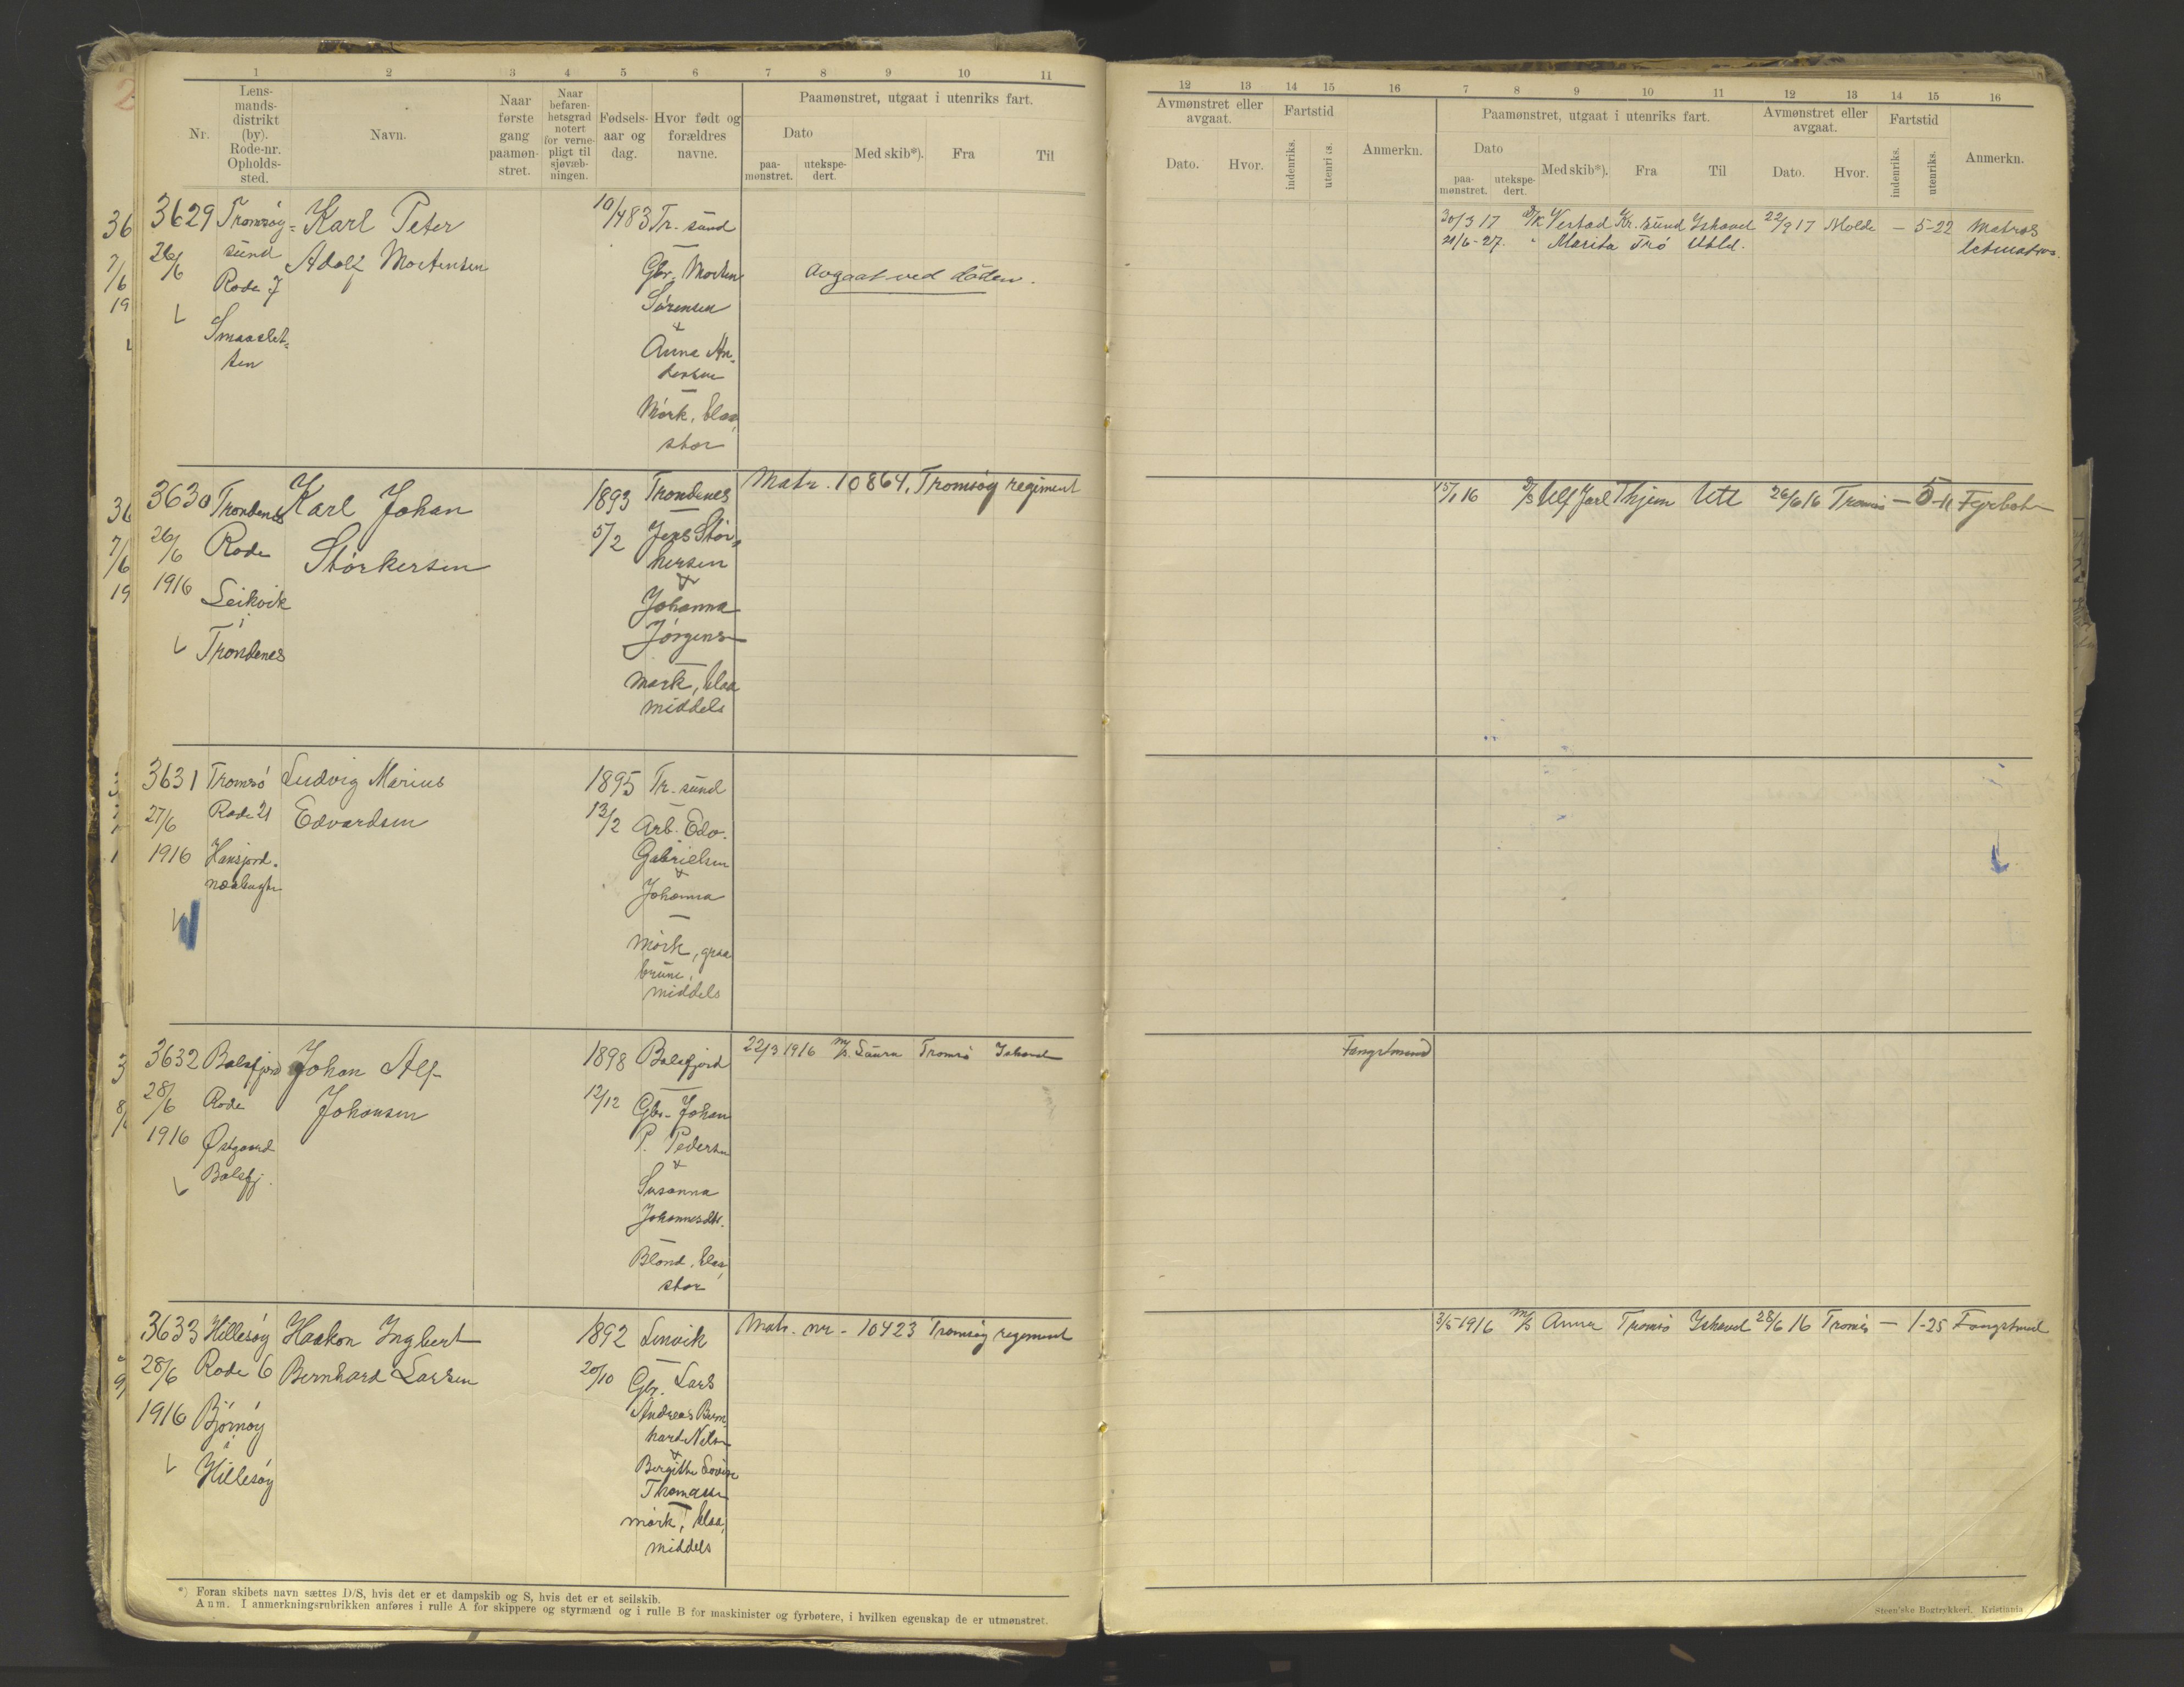 1 2 3 4 5 6 7 8 9 10 11
Nr.
Lens-
mands-
distrikt
(by).
Rode-nr.
Opholds-
sted.
Navn.
Naar
første
gang
paamøn-
stret.
Naar
befaren-
hetsgrad
notert
for verne-
pligt til
sjøvæb-
ningen.
Fødsels-
aar og
dag.
Hvor født og
forældres
navne.
Paamønstret, utgaat i utenriks fart.
Dato
paa-
mønstret.
utekspe-
dert.
Med skib*).
Fra
Til
3629
26/6
Tromsøy-
sund
Rode 7
Smaaslet-
ten
Karl Peter
Adolf Mortensen
10/4 83
Tr. sund
Gbr. Morten
Sørensen
&
Anna An-
Mørk, blaa,
stor
Avgaat ved døden.
3630
26/6
1916
Trondenes
Rode
Leikvik
i
Trondenes
Karl Johan
Størkersen
1893
5/2
Trondenes
Jens Stør-
kersen
&
Johanna
Jørgensen
mørk, blaa
middels
Matr. 10864, Tromsøy regiment
3631
27/6
1916
Tromsø
Rode 21
Hansjord-
Ludvig Marius
Edvardsen
1895
13/2
Tr. sund
Arb. Edv.
Gabrielsen
&
Johanna
mørk, graa
brune,
middels
3632
28/6
1916
Balsfjord
Rode
Østgaard
Balsfj.
Johan Alf
Johansen
1898
12/12
Balsfjord
Gbr. Johan
P. Pedersen
&
Susanna
Johannesdtr.
Blond, blaa,
stor
22/3 1916 m/s Laura Tromsø Ishavet
3633
28/6
1916
Hillesøy
Rode 6
Bjørnøy
i
Hillesøy
Haakon Ingbert
Bernhard Larsen
1892
20/10
Lenvik
Gbr. Lars
Andreas Bern
hard Nilsen
&
Bergithe Lovise
Thomassen
mørk, blaa,
middels
Matr. nr. 10423 Tromsøy regement
*) Foran skibets navn sættes D/S, hvis det er et dampskib og S, hvis det er et seilskib.
Anm. I anmerkningsrubrikken anføres i rulle A for skippere og styrmænd og i rulle B for maskinister og fyrbøtere, i hvilken egenskap de er utmønstret.
12 13 14 15 16 7 8 9 10 11 12 13 14 15 16
Avmønstret eller
avgaat.
Dato. Hvor.
Fartstid
indenriks.
utenriks.
Anmerkn.
Paamønstret, utgaat i utenriks fart.
Dato
paa-
mønstret.
utekspe-
dert.
Med skib*).
Fra
Til
Avmønstret eller
avgaat.
Dato. Hvor.
Fartstid
indenriks.
utenriks.
Anmerkn.
30/3 17 Vestad Kr. sund Ishavet 22/9 17 Molde – 5-22 Matros
21/6-27. " Marita Trø Utld. Letmatros.
15/1 16 D/S Ulf Jarl Thjem Utl 26/6 16 Tromsø – 5-11 Fyrbøter
Fangstmand
3/5-1916 m/s Anna Tromsø Ishavet 28/6 16 Tromsø – 1-25 Fangstmand
Steen'ske Bogtrykkeri, Kristiania